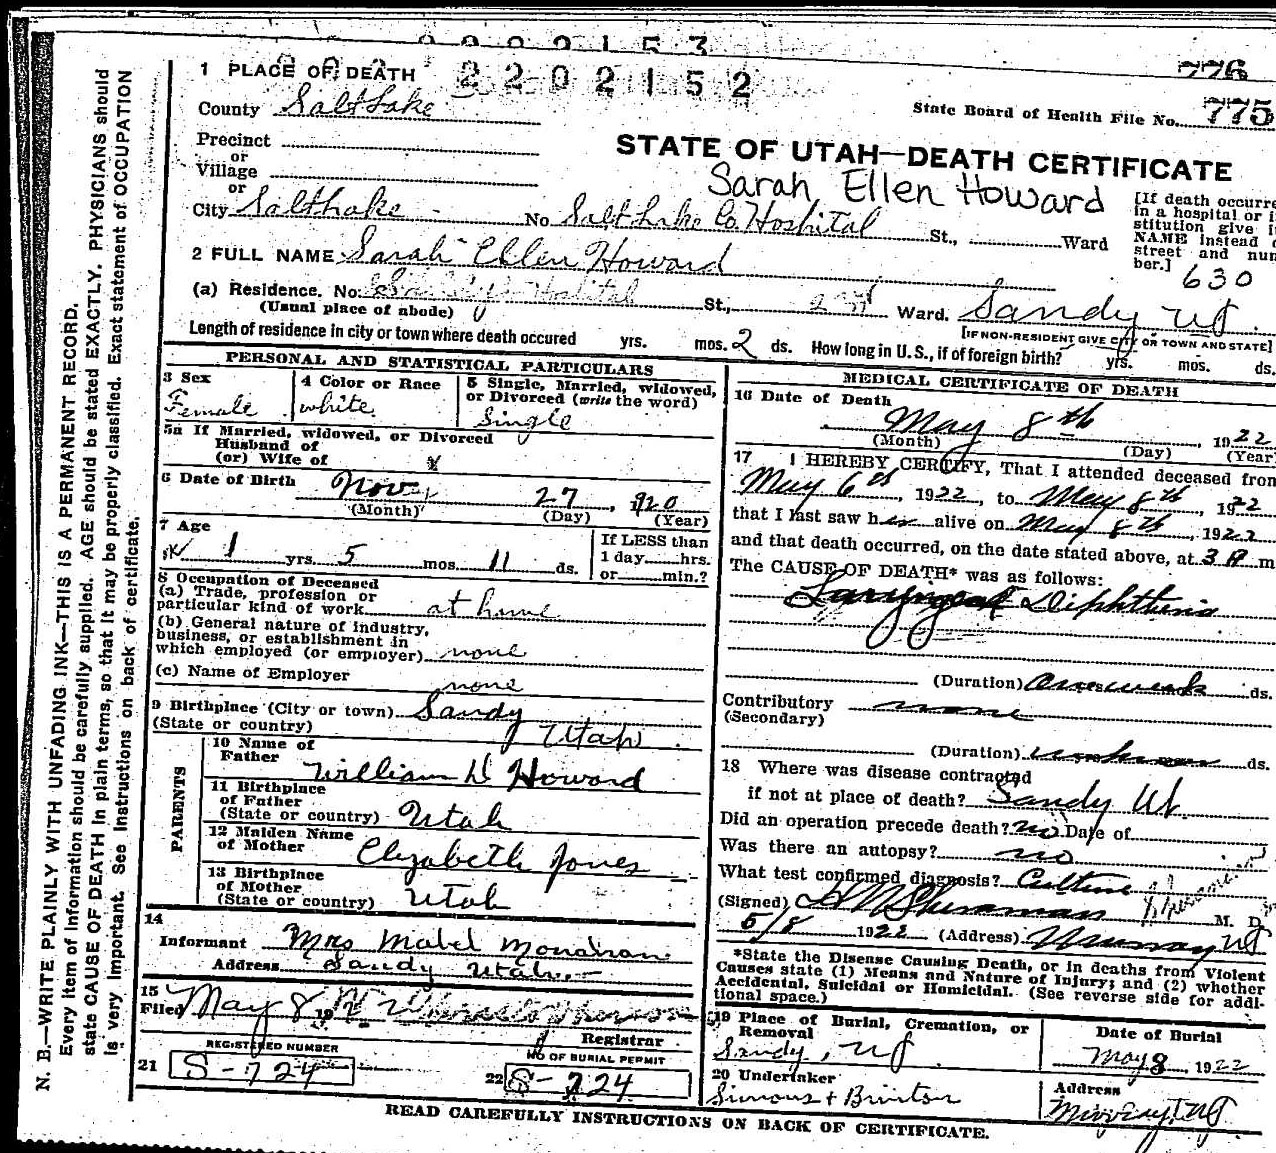 2202153
776
1 PLACE OF DEATH 2202152
State Board of Health File No. 775
County Salt Lake
Precinct
or
Village
or
STATE OF UTAH—DEATH CERTIFICATE
Sarah Ellen Howard
City Salt Lake No Salt Lake Co. Hospital St., Ward
[If death occurre
in a hospital or i
stitution give i
NAME instead o
street and num
ber.]
630
2 FULL NAME Sarah Ellen Howard
(a) Residence. No. Hospital St., 2nd Ward. Sandy Ut.
(Usual place of abode)
[IF NON-RESIDENT GIVE CITY OR TOWN AND STATE]
Length of residence in city or town where death occured yrs. mos. 2 ds. How long in U.S., if of foreign birth? yrs. mos. ds.
PERSONAL AND STATISTICAL PARTICULARS
3 Sex
Female
4 Color or Race
white
5 Single, Married, widowed,
or Divorced (write the word)
Single
5a If Married, widowed, or Divorced
Husband of
(or) Wife of
6 Date of Birth Nov 27, 1920
(Month) (Day) (Year)
7 Age
1 yrs. 5 mos. 11 ds.
If LESS than
1 day hrs.
or min.?
8 Occupation of Deceased
(a) Trade, profession or
particular kind of work at home
(b) General nature of industry,
business, or establishment in
which employed (or employer) none
(c) Name of Employer
none
9 Birthplace (City or town) Sandy
(State or country) Utah
PARENTS
10 Name of
Father William D Howard
11 Birthplace
of Father
(State or country) Utah
12 Maiden Name
of Mother Elizabeth Jones
13 Birthplace
of Mother
(State or country) Utah
14
Informant Mrs Mabel Monahan
Address Sandy Utah
15
Filed May 8 19
Registrar
REGISTERED NUMBER
21 S-724
NO OF BURIAL PERMIT
22 S-724
MEDICAL CERTIFICATE OF DEATH
16 Date of Death
May 8th, 1922
(Month) (Day) (Year
17 I HEREBY CERTIFY, That I attended deceased from
May 6th, 1922, to May 8th, 1922
that I last saw her alive on May 8th, 1922
and that death occurred, on the date stated above, at 3 A m
The CAUSE OF DEATH* was as follows:
Laryngeal Diphtheria
(Duration) one week ds.
Contributory none
(Secondary)
(Duration) unknown ds.
18 Where was disease contracted
if not at place of death? Sandy Ut.
Did an operation precede death? no Date of
Was there an autopsy? no
What test confirmed diagnosis? Culture
(Signed) M. D.
5/8 1922 (Address) Murray Ut
*State the Disease Causing Death, or in deaths from Violent
Causes state (1) Means and Nature of Injury; and (2) whether
Accidental, Suicidal or Homicidal. (See reverse side for addi-
tional space.)
19 Place of Burial, Cremation, or
Removal
Sandy, Ut
Date of Burial
May 8, 1922
20 Undertaker
Simons + Brinton
Address
Murray, Ut
READ CAREFULLY INSTRUCTIONS ON BACK OF CERTIFICATE.
N. B.—WRITE PLAINLY WITH UNFADING INK—THIS IS A PERMANENT RECORD.
Every item of information should be carefully supplied. AGE should be stated EXACTLY. PHYSICIANS should
state CAUSE OF DEATH in plain terms, so that it may be properly classified. Exact statement of OCCUPATION
is very important. See Instructions on back of certificate.